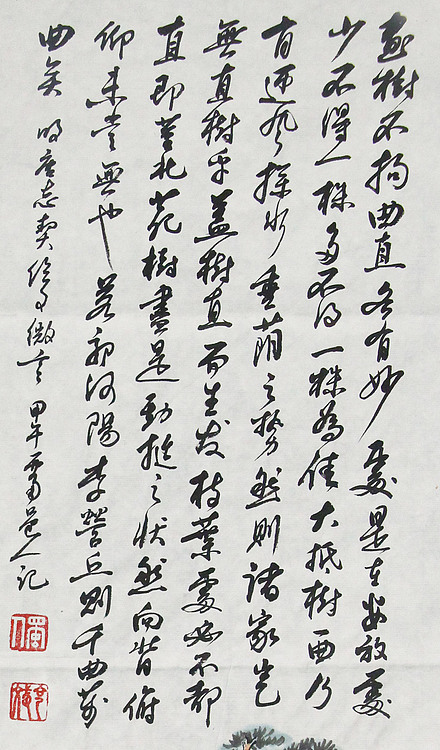 畫樹不拘曲直各有妙處是在安放處
少不得一株多不得一株為佳大抵樹要
有迎風探水垂蔭之勢然則諸家豈
無直樹乎蓋樹直而生發枝葉處必不都
直即董北苑樹盡是勁挺之狀然向背俯
仰未嘗無也若郭河陽李營丘則千曲萬
曲矣 明唐志契繪事微言 甲午 邑人記